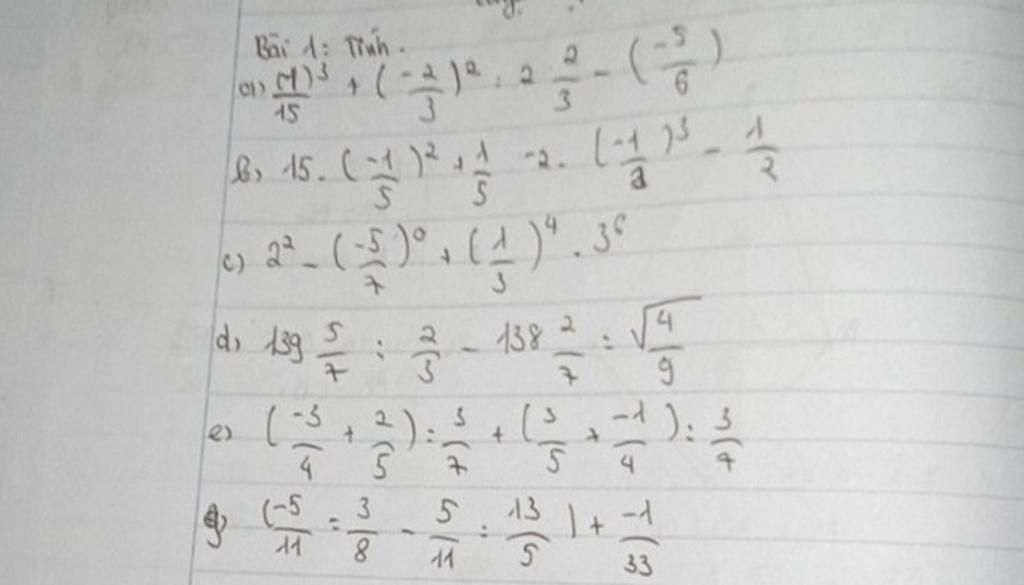 Bài 1: Tính.
a) (-1)³/15 + (-2/3)² : 2 2/3 - (-5/6)
b) 15. (-1/5)² + 1/5 -2. (-1/2)³ - 1/2
c) 2² - (-5/7)⁰ + (1/3)⁴ . 3⁶
d) 139 5/7 : 2/3 - 138 2/7 : √4/9
e) (-3/4 + 2/5) : 3/7 + (3/5 + -1/4) : 3/7
g) (-5/11 : 3/8 - 5/11 : 13/5) + -1/33